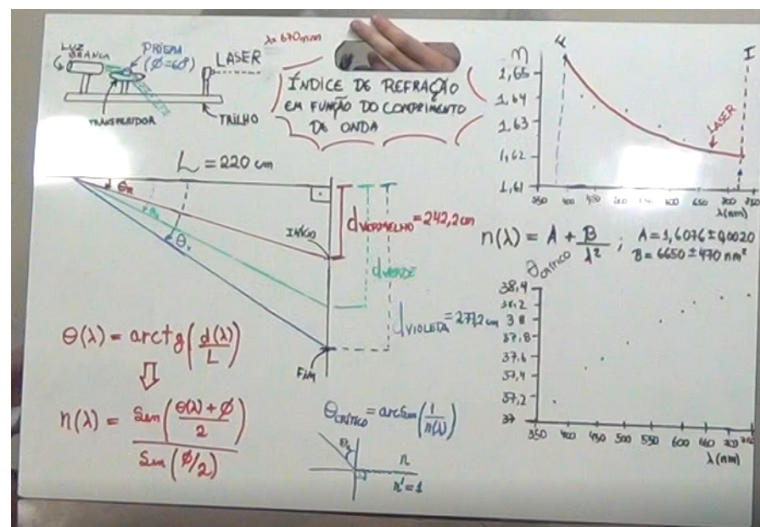 LUZ
BRANCA
PRISMA
(Ø=60°)
LASER
λ= 670nm
TRANSFERIDOR
TRILHO
ÍNDICE DE REFRAÇÃO
EM FUNÇÃO DO COMPRIMENTO
DE ONDA
L = 220 cm
INÍCIO
dVERMELHO = 242,2cm
dVERDE
dVIOLETA = 277,2cm
FIM
θ(λ) = arctg(d(λ)/L)
n(λ) = Sen((θ(λ)+Ø)/2)
Sen(Ø/2)
θCRÍTICO = arcSen(1/n(λ))
n
n'=1
n
1,65
1,64
1,63
1,62
1,61
I
LASER
350
400
450
650
700
750
λ(nm)
n(λ) = A + B/λ² ; A = 1,6076 ± 0,0020
B = 6650 ± 470 nm²
θCRÍTICO
38,4
38,2
38
37,8
37,6
37,4
37,2
37
350 400 450 500 550 600 650 700 750
λ(nm)